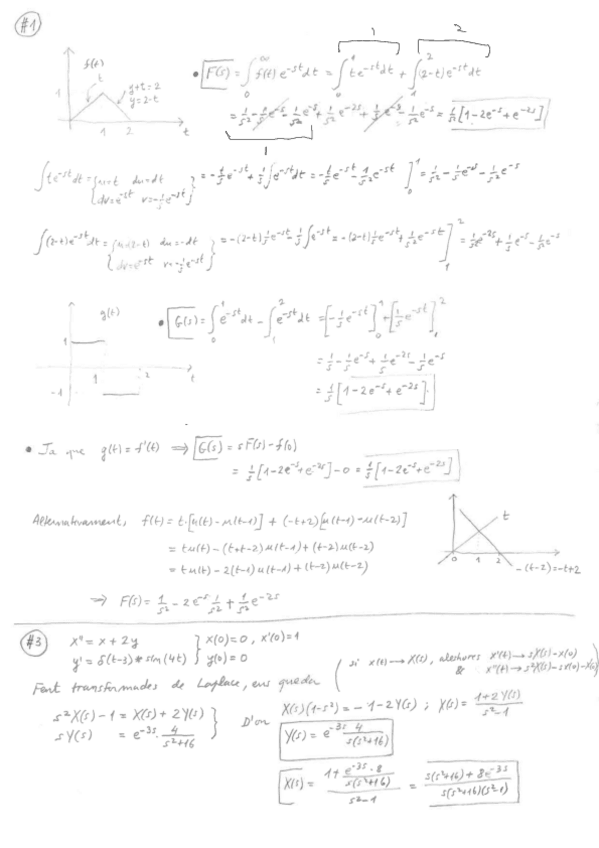 #1
f(t)
t
y+t=2
y=2-t
1
1 2 t
1 2
• F(s) = ∫₀^∞ f(t) e^{-st} dt = ∫₀^1 t e^{-st} dt + ∫₁^2 (2-t) e^{-st} dt
= 1/s² - 1/s e^{-s} - 1/s² e^{-s} + 1/s² e^{-2s} + 1/s e^{-s} - 1/s² e^{-s} = 1/s² [1-2e^{-s}+e^{-2s}]
1
∫ t e^{-st} dt = {u=t du=dt
dv=e^{-st} v=-1/s e^{-st}} = -t/s e^{-st} + 1/s ∫ e^{-st} dt = -t/s e^{-st} - 1/s² e^{-st} ]₀^1 = 1/s² - 1/s e^{-s} - 1/s² e^{-s}
∫ (2-t) e^{-st} dt = {u=(2-t) du=-dt
dv=e^{-st} v=-1/s e^{-st}} = -(2-t) 1/s e^{-st} - 1/s ∫ e^{-st} = -(2-t) 1/s e^{-st} + 1/s² e^{-st} ]₁^2 = 1/s² e^{-2s} + 1/s e^{-s} - 1/s² e^{-s}
g(t)
1
1 2 t
-1
• G(s) = ∫₀^1 e^{-st} dt - ∫₁^2 e^{-st} dt = [-1/s e^{-st}]₀^1 + [1/s e^{-st}]₁^2
= 1/s - 1/s e^{-s} + 1/s e^{-2s} - 1/s e^{-s}
= 1/s [1-2e^{-s}+e^{-2s}].
• Ja que g(t) = f'(t) ⟹ G(s) = sF(s) - f(0)
= 1/s [1-2e^{-s}+e^{-2s}] - 0 = 1/s [1-2e^{-s}+e^{-2s}]
Alternativament, f(t) = t·[u(t)-u(t-1)] + (-t+2)[u(t-1)-u(t-2)]
= tu(t) - (t+t-2)u(t-1) + (t-2)u(t-2)
= tu(t) - 2(t-1)u(t-1) + (t-2)u(t-2)
⟹ F(s) = 1/s² - 2e^{-s}·1/s² + 1/s² e^{-2s}
t
0 1 2
-(t-2)=-t+2
#3
x'' = x + 2y
y' = δ(t-3) * sin(4t)
} x(0)=0, x'(0)=1
y(0)=0
(si x(t) → X(s), aleshores x'(t) → sX(s)-x(0)
& x''(t) → s²X(s)-sx(0)-x'(0))
Fent transformades de Laplace, ens queda
s²X(s) - 1 = X(s) + 2Y(s)
sY(s) = e^{-3s}· 4/(s²+16)
D'on X(s)(1-s²) = -1-2Y(s) ; X(s) = (1+2Y(s))/(s²-1)
Y(s) = e^{-3s} 4/(s(s²+16))
X(s) = (1 + e^{-3s}·8/(s(s²+16)))/(s²-1) = (s(s²+16)+8e^{-3s})/(s(s²+16)(s²-1))